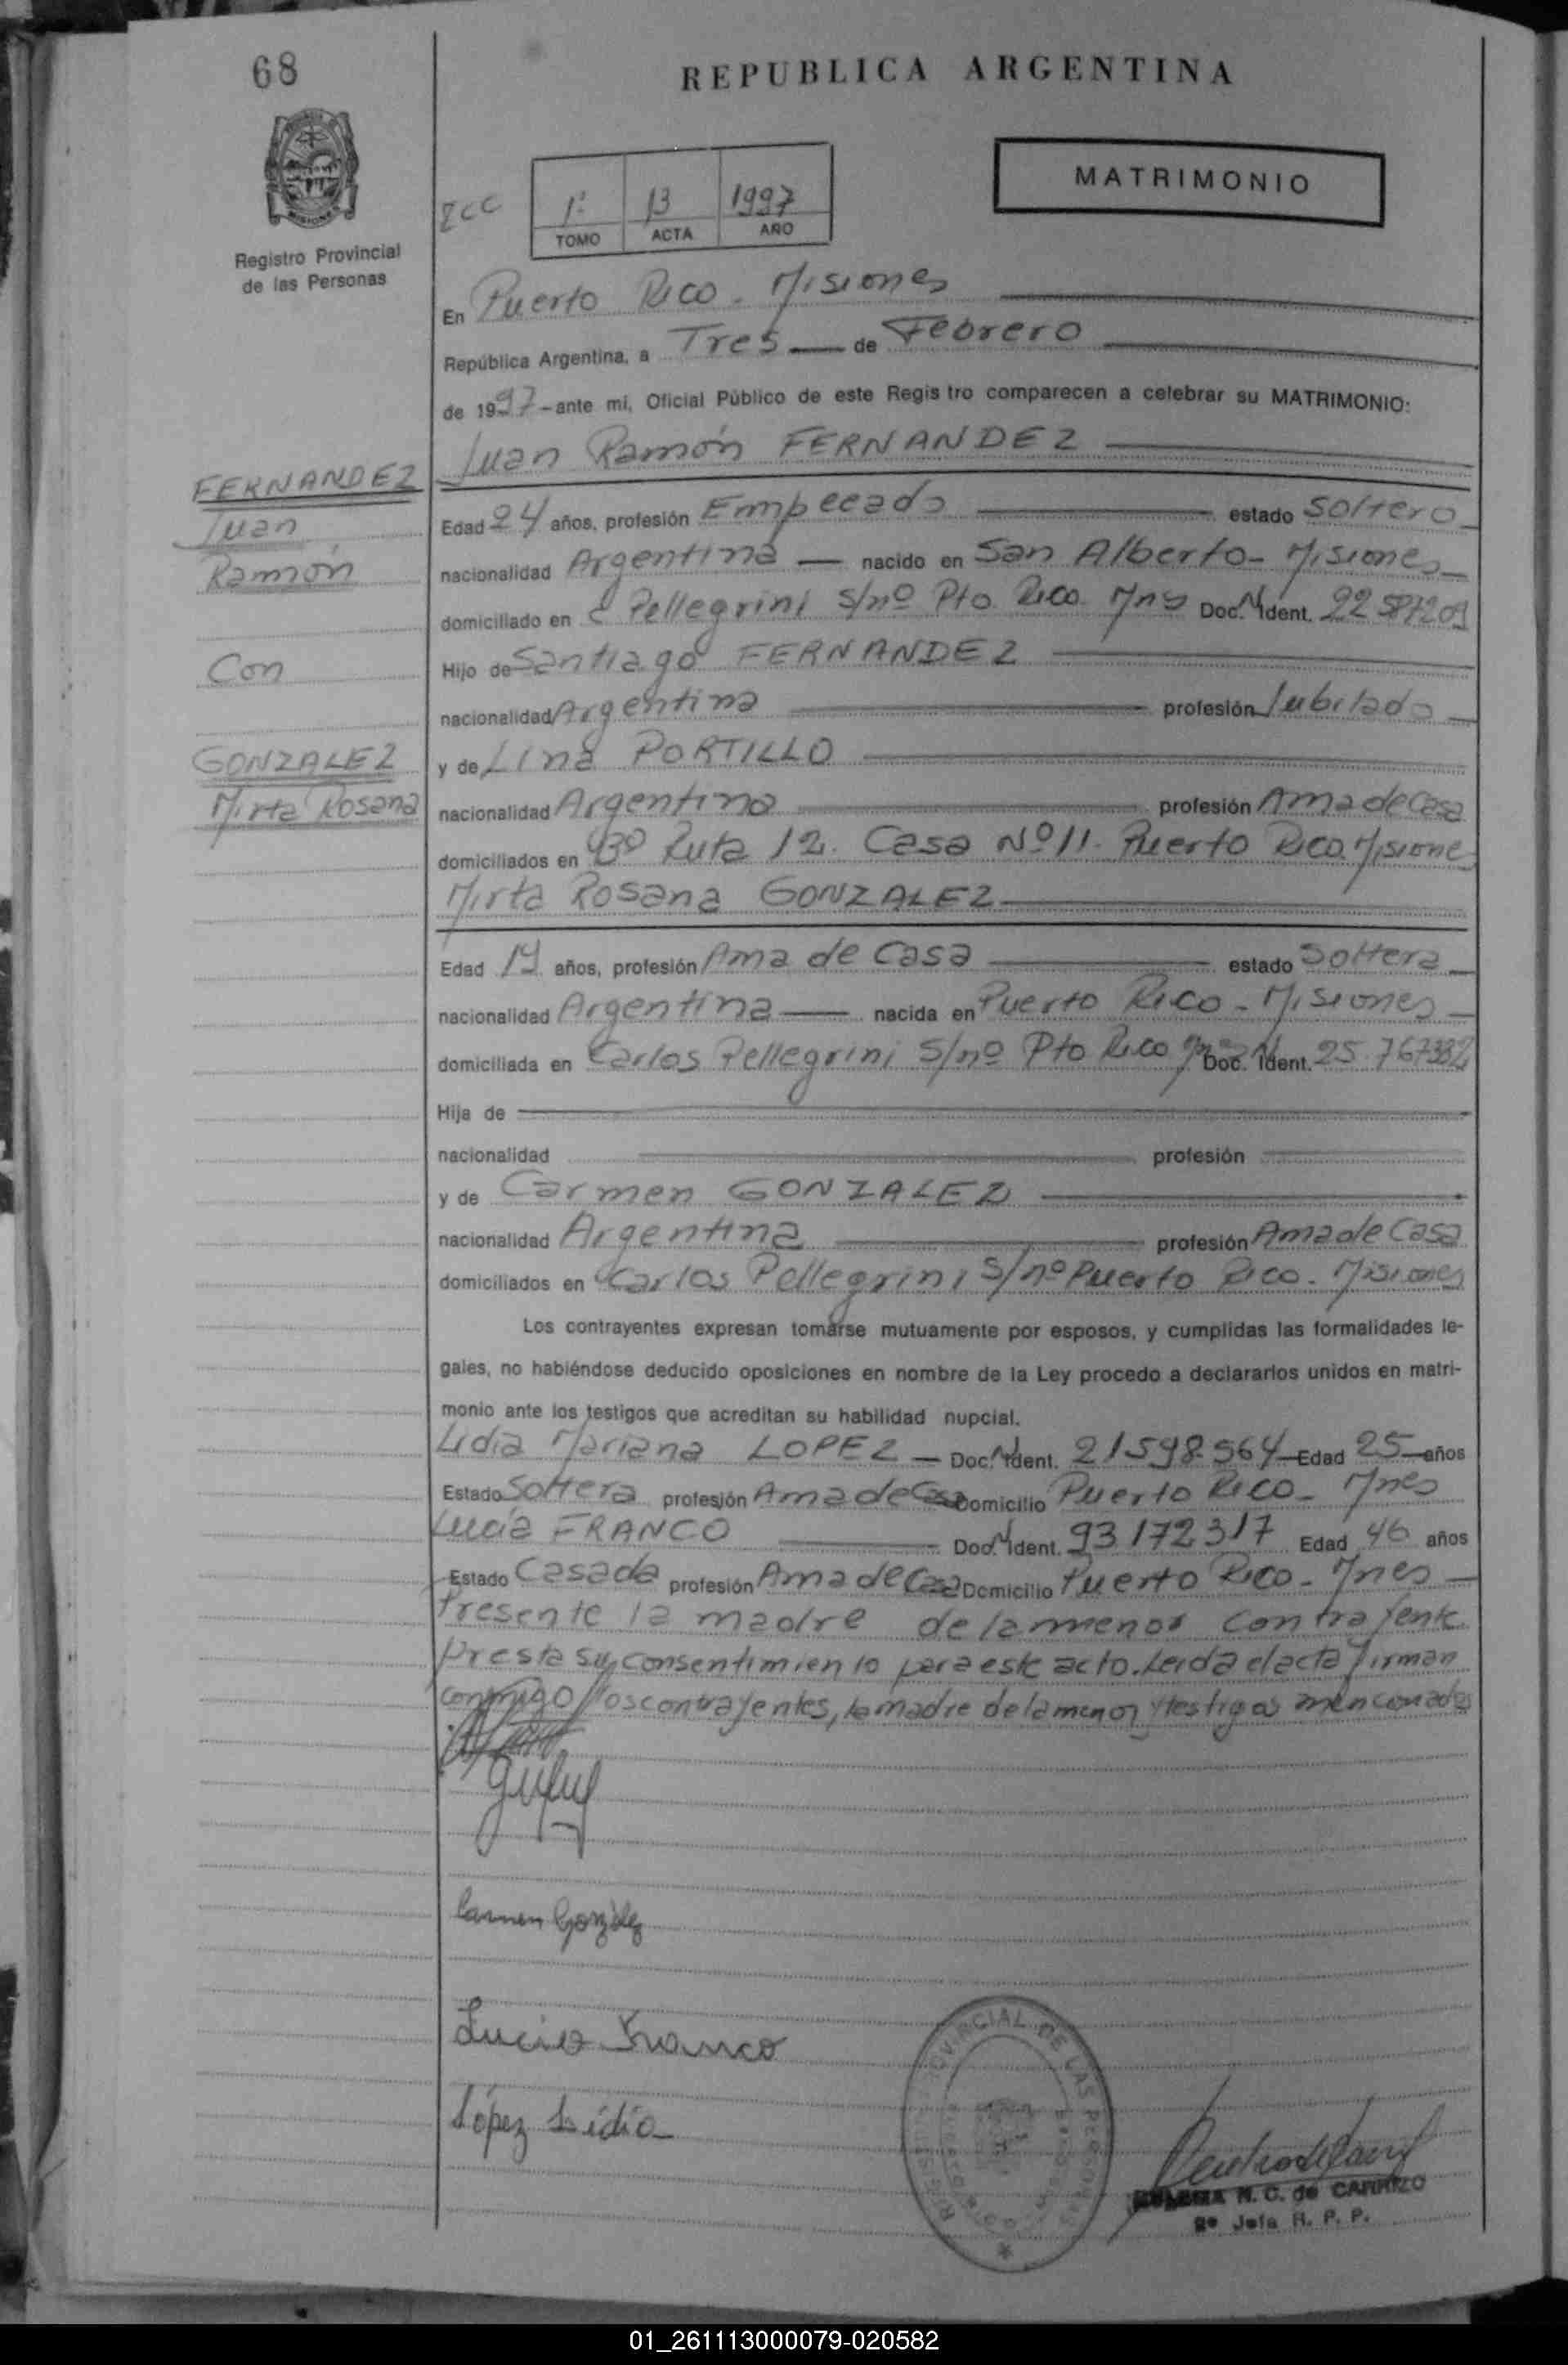 68
REPUBLICA ARGENTINA
MATRIMONIO
MISIONES
Registro Provincial
de las Personas
1º 13 1997
TOMO ACTA AÑO
En Puerto Rico - Misiones
República Argentina, a Tres de Febrero
de 1997 - ante mi, Oficial Público de este Regis tro comparecen a celebrar su MATRIMONIO:
Juan Ramón FERNANDEZ
FERNANDEZ
Juan
Ramón
Con
GONZALEZ
Mirta Rosana
Edad 24 años, profesión Empleado estado Soltero
nacionalidad Argentina nacido en San Alberto - Misiones
domiciliado en C Pellegrini s/nº Pto. Rico. Mnes Doc. N. Ident. 22 587209
Hijo de Santiago FERNANDEZ
nacionalidad Argentina profesión Jubilado
y de Lina PORTILLO
nacionalidad Argentina profesión Ama de Casa
domiciliados en Bº Ruta 12. Casa Nº 11. Puerto Rico. Misiones
Mirta Rosana GONZALEZ
Edad 19 años, profesión Ama de Casa estado Soltera
nacionalidad Argentina nacida en Puerto Rico - Misiones
domiciliada en Carlos Pellegrini S/nº Pto Rico Doc. N. Ident. 25.767382
Hija de
nacionalidad profesión
y de Carmen GONZALEZ
nacionalidad Argentina profesión Ama de Casa
domiciliados en Carlos Pellegrini S/nº Puerto Rico - Misiones
Los contrayentes expresan tomarse mutuamente por esposos, y cumplidas las formalidades le-
gales, no habiéndose deducido oposiciones en nombre de la Ley procedo a declararlos unidos en matri-
monio ante los testigos que acreditan su habilidad nupcial.
Lidia Mariana LOPEZ - Doc. N. Ident. 21598.564 Edad 25 años
Estado Soltera profesión Ama de Casa Domicilio Puerto Rico - Mnes
Lucía FRANCO Doc. N. Ident. 93172317 Edad 46 años
Estado Casada profesión Ama de Casa Domicilio Puerto Rico - Mnes
Presente la madre de la menor contrayente
presta su consentimiento para este acto. Leida el acta firman
conmigo los contrayentes, la madre de la menor y testigos mencionados
Carmen González
Lucia Franco
López Lidia
PROVINCIAL DE LAS PERSONAS
N. C. de CARRIZO
2º Jefa R. P. P.
01_261113000079-020582